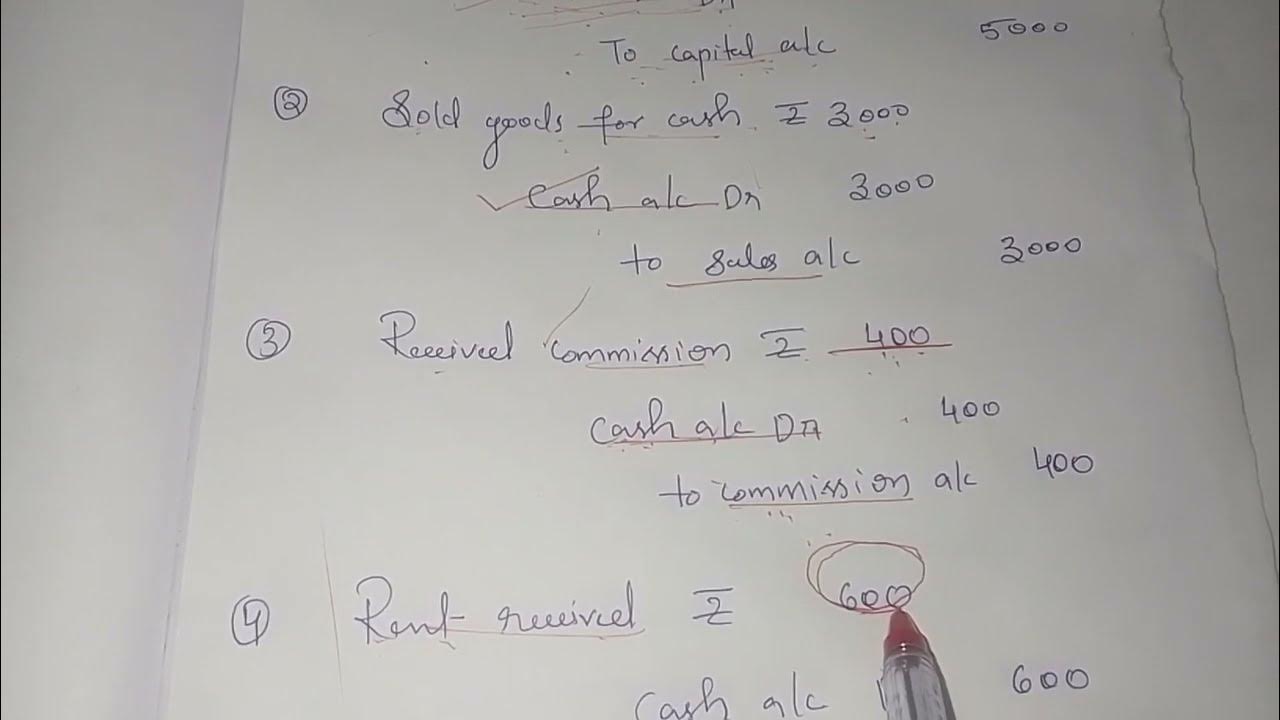 To capital a/c 5000
② Sold goods for cash ₹ 3000
Cash a/c Dr 3000
to sales a/c 3000
③ Received commission ₹ 400
Cash a/c Dr 400
to commission a/c 400
④ Rent received ₹ 600
Cash a/c 600